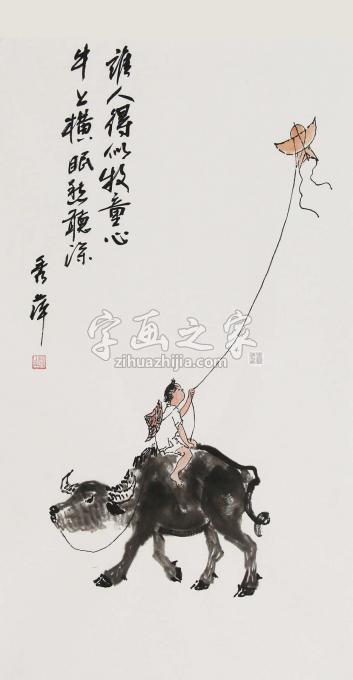 誰人得似牧童心
牛上橫眠秋聽深
秀萍
字画之家
zihuazhijia.com